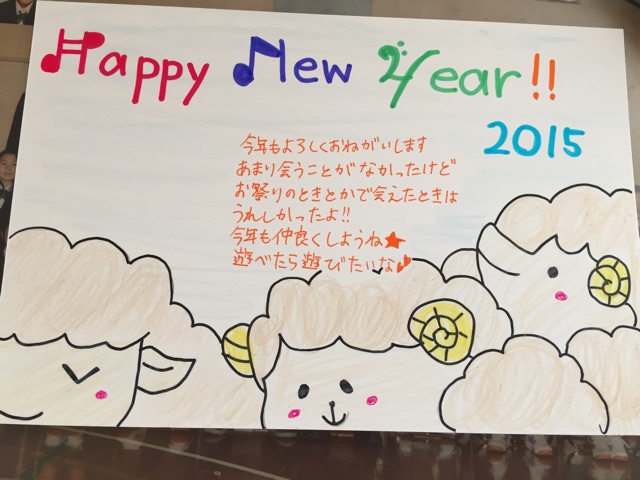 Happy New Year!!
2015
今年もよろしくおねがいします
あまり会うことがなかったけど
お祭りのときとかで会えたときは
うれしかったよ!!
今年も仲良くしようね★
遊べたら遊びたいな♥